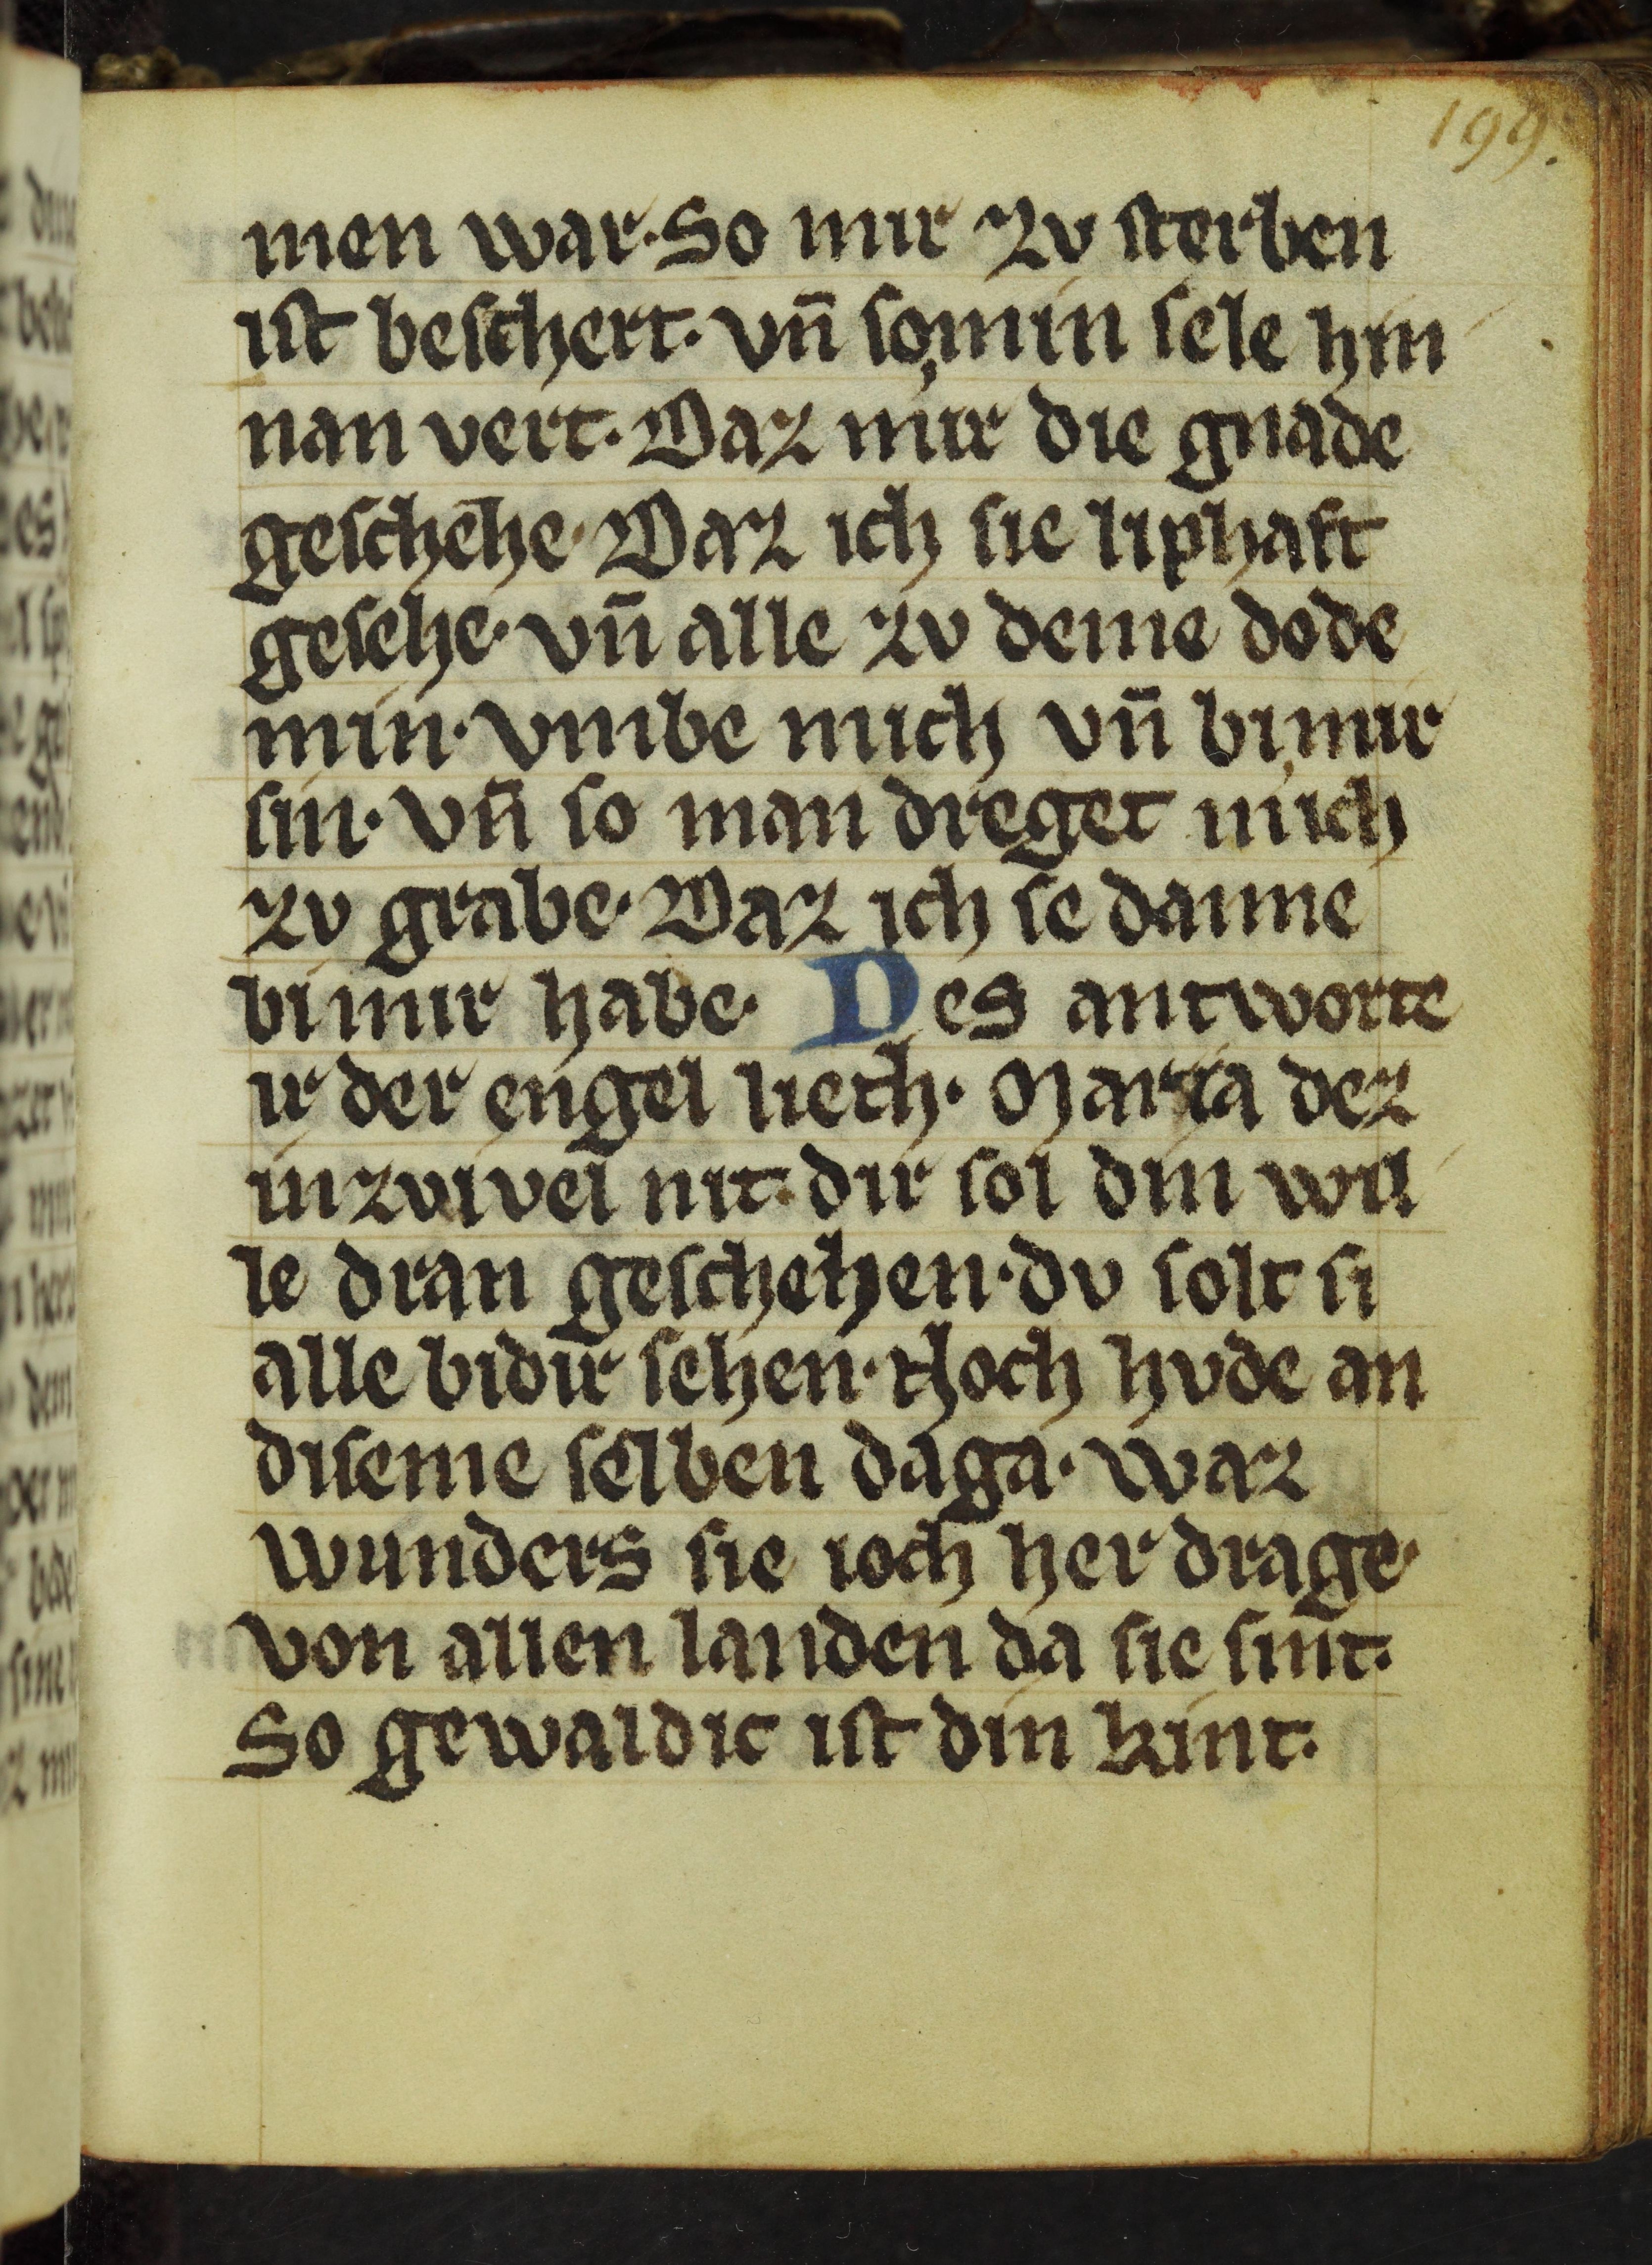 199.
men war· So mir zv sterben
ist beschert· vn̄ so min sele hin
nan vert· Daz mir die gnade
geschehe· Daz ich sie liphaft
gesehe· vn̄ alle zv deme dode
min· vmbe mich vn̄ bi mir
sin· vn̄ so man dreget mich
zv grabe· Daz ich se danne
bi mir habe· Des antworte
ir der engel lieth· Maria dez
inzvivel nit· dir sol din wil
le dran geschehen· dv solt si
alle bi dir sehen· Noch hvde an
diseme selben daga· waz
wunders sie ioch her drage·
von allen landen da sie sint·
So gewaldic ist din kint·